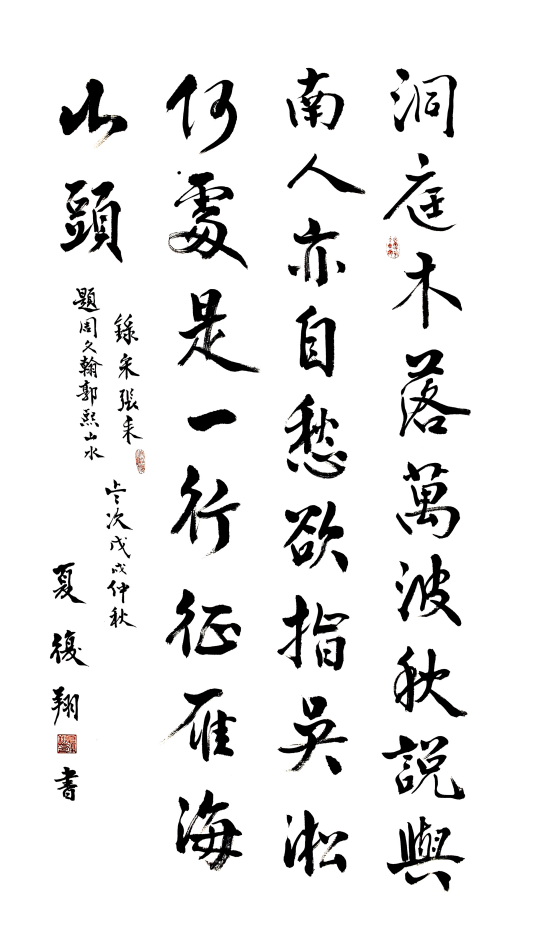 洞庭木落萬波秋說與
南人亦自愁欲指吳淞
何處是一行征雁海
山頭
錄宋張耒
題周文翰郭熙山水
歲次戊戌仲秋
夏復翔
書